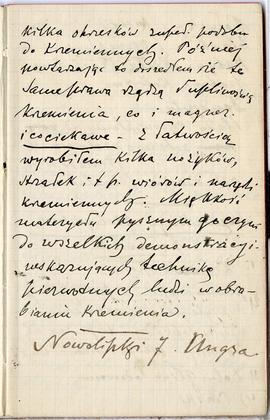 kilka okrzesków zupeł. podobn
do Krzemiennych. Później
powtarzając to doszedłem że te
same prawa rządzą łupliwością
Krzemienia, co i magnez.
i co ciekawe - z łatwością
wyrobiłem kilka nożyków,
strzałek i t p. wiórów i narzędzi
krzemiennych. Miękkość
materyału pysznym go czyni
do wszelkich demonstracyj
wskazujących technikę
pierwotnych ludzi w obra-
bianiu Krzemienia.
J. Ungra